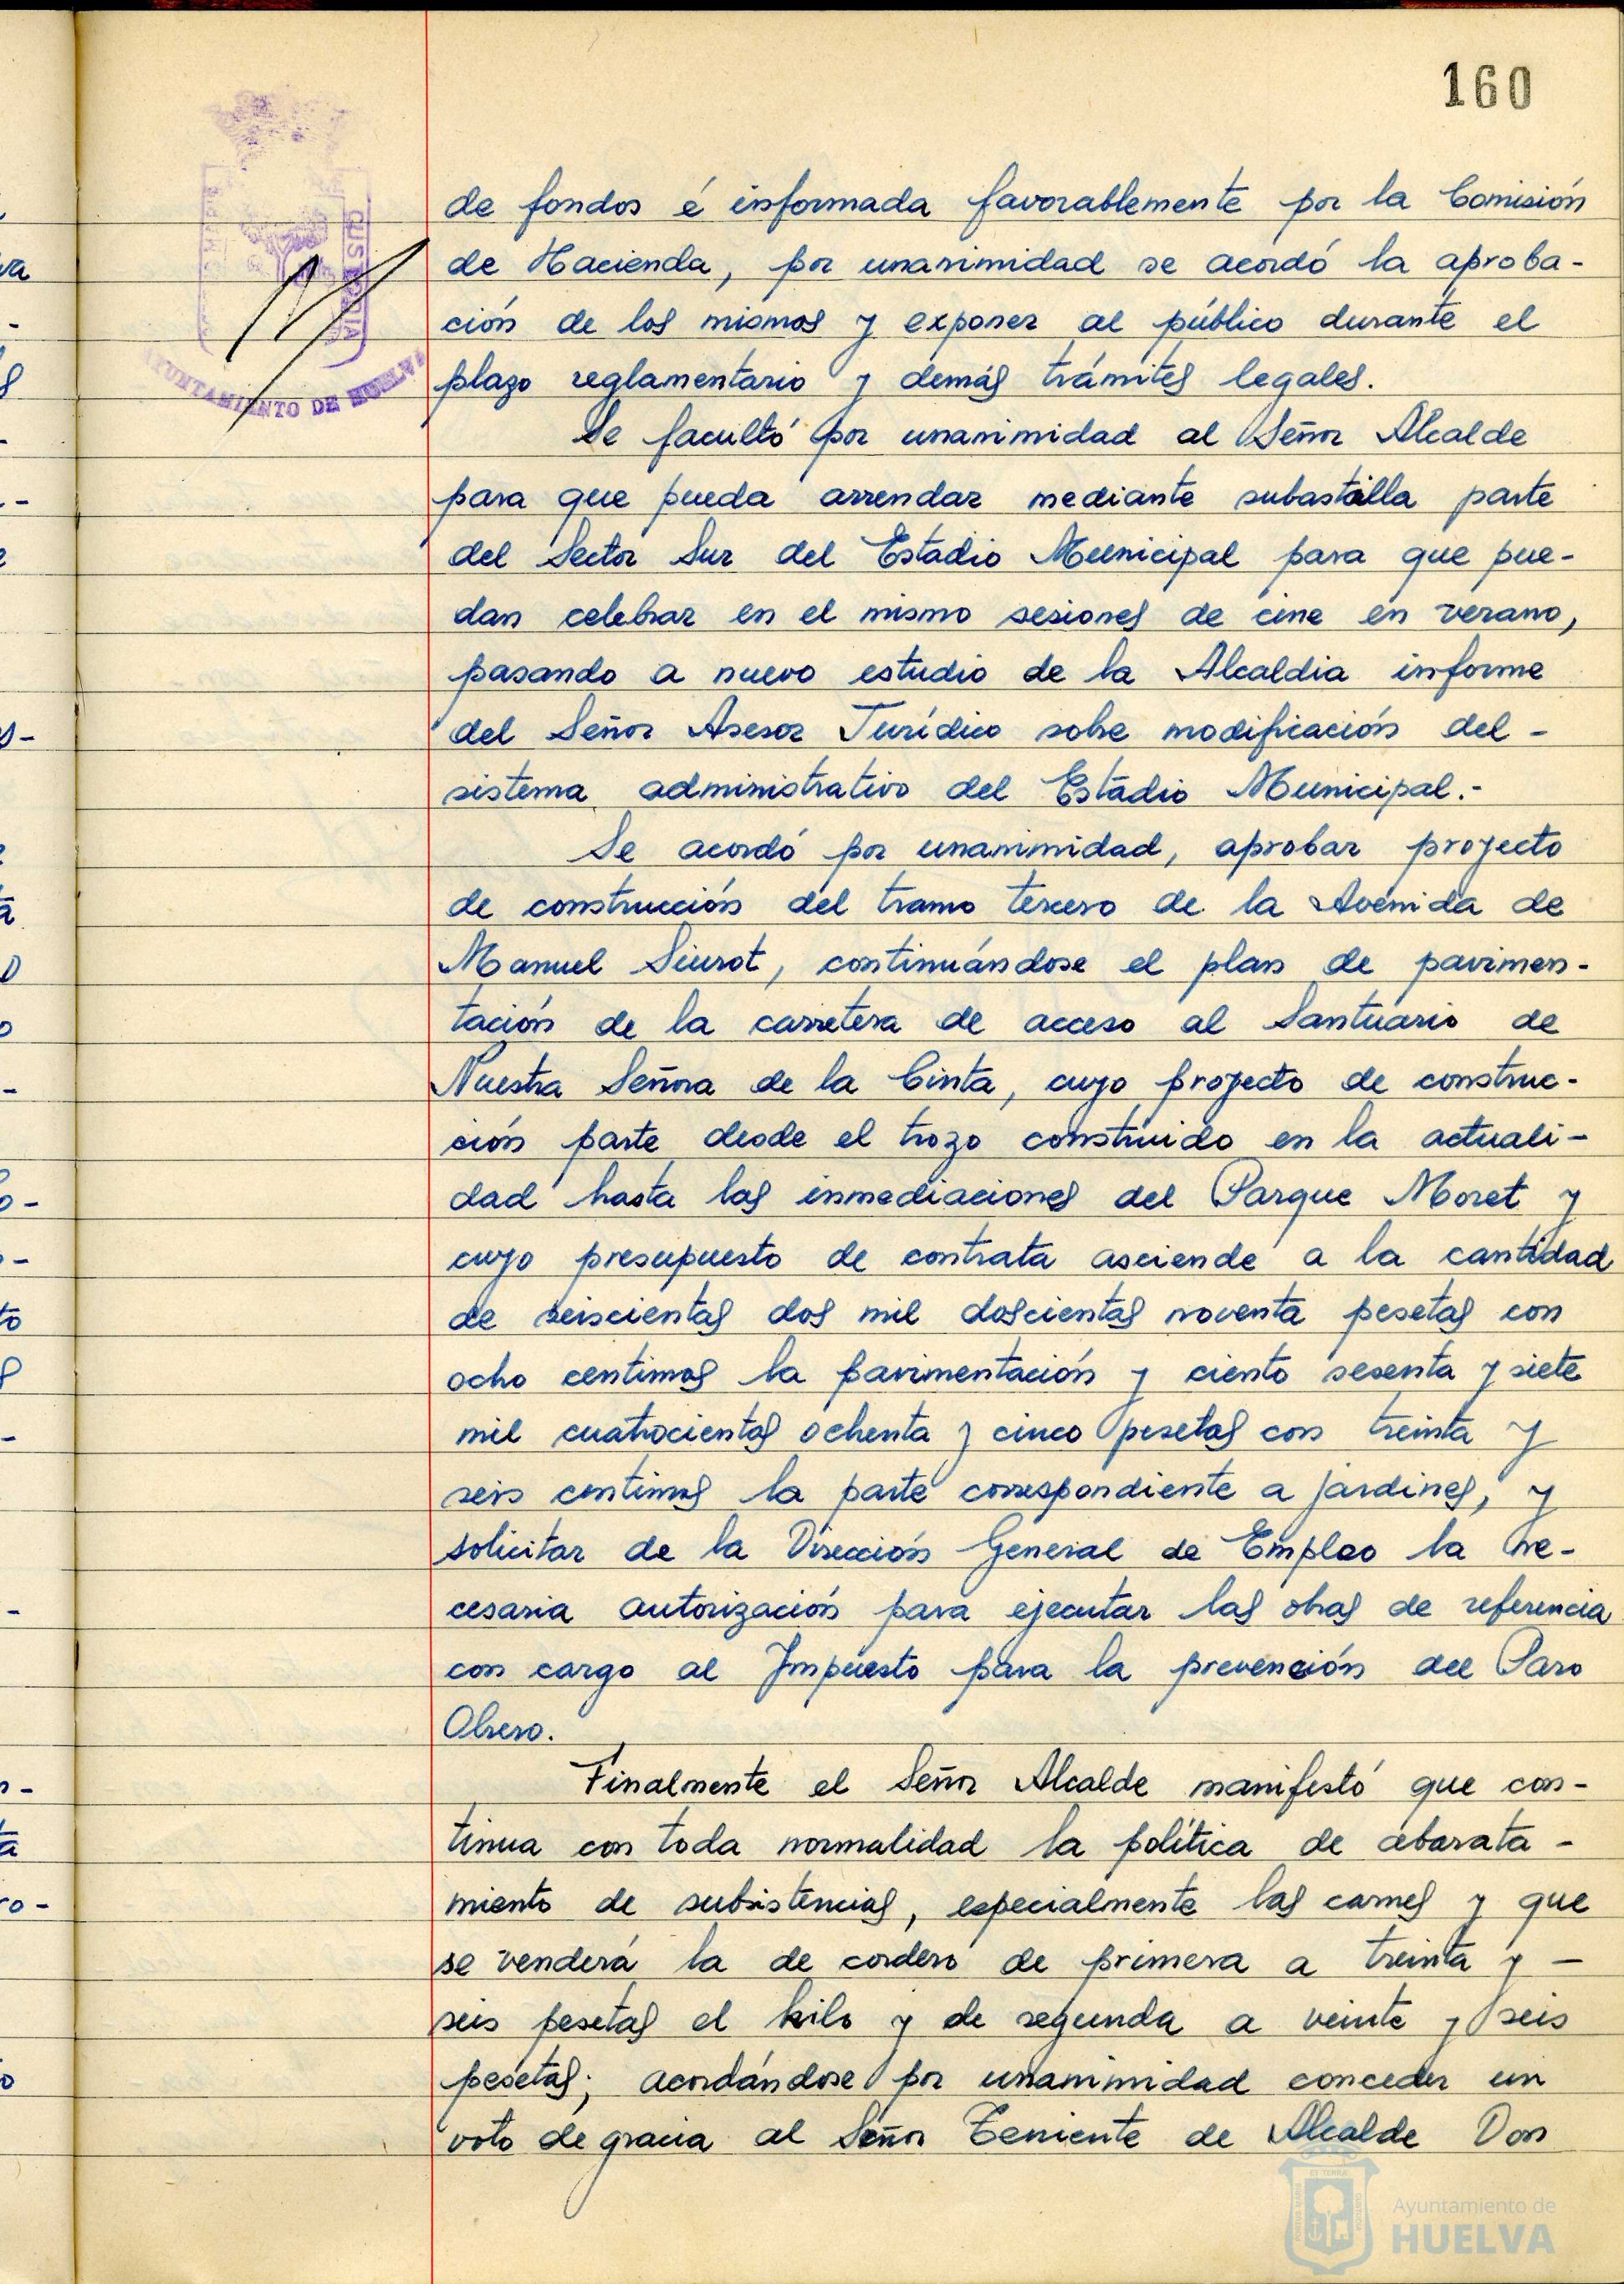 160
de fondos é informada favorablemente por la Comisión
de Hacienda, por unanimidad se acordó la aproba-
ción de los mismos y exponer al público durante el
plazo reglamentario y demás trámites legales.
Se facultó por unanimidad al Señor Alcalde
para que pueda arrendar mediante subastilla parte
del Sector Sur del Estadio Municipal para que pue-
dan celebrar en el mismo sesiones de cine en verano,
pasando a nuevo estudio de la Alcaldia informe
del Señor Asesor Jurídico sobre modificación del -
sistema administrativo del Estadio Municipal.-
Se acordó por unanimidad, aprobar proyecto
de construcción del tramo tercero de la Avenida de
Manuel Siurot, continuándose el plan de pavimen-
tación de la carretera de acceso al Santuario de
Nuestra Señora de la Cinta, cuyo proyecto de construc-
ción parte desde el trozo construido en la actuali-
dad hasta las inmediaciones del Parque Moret y
cuyo presupuesto de contrata asciende a la cantidad
de seiscientas dos mil doscientas noventa pesetas con
ocho centimos la pavimentación y ciento sesenta y siete
mil cuatrocientas ochenta y cinco pesetas con treinta y
seis centimos la parte correspondiente a jardines, y
solicitar de la Dirección General de Empleo la ne-
cesaria autorización para ejecutar las obras de referencia
con cargo al Impuesto para la prevención del Paro
Obrero.
Finalmente el Señor Alcalde manifestó que con-
tinua con toda normalidad la política de abarata-
miento de subsistencias, especialmente las carnes y que
se venderá la de cordero de primera a treinta y -
seis pesetas el kilo y de segunda a veinte y seis
pesetas; acordándose por unanimidad conceder un
voto de gracia al Señor Teniente de Alcalde Don
CUSTODIA
AYUNTAMIENTO DE HUELVA
Ayuntamiento de
HUELVA